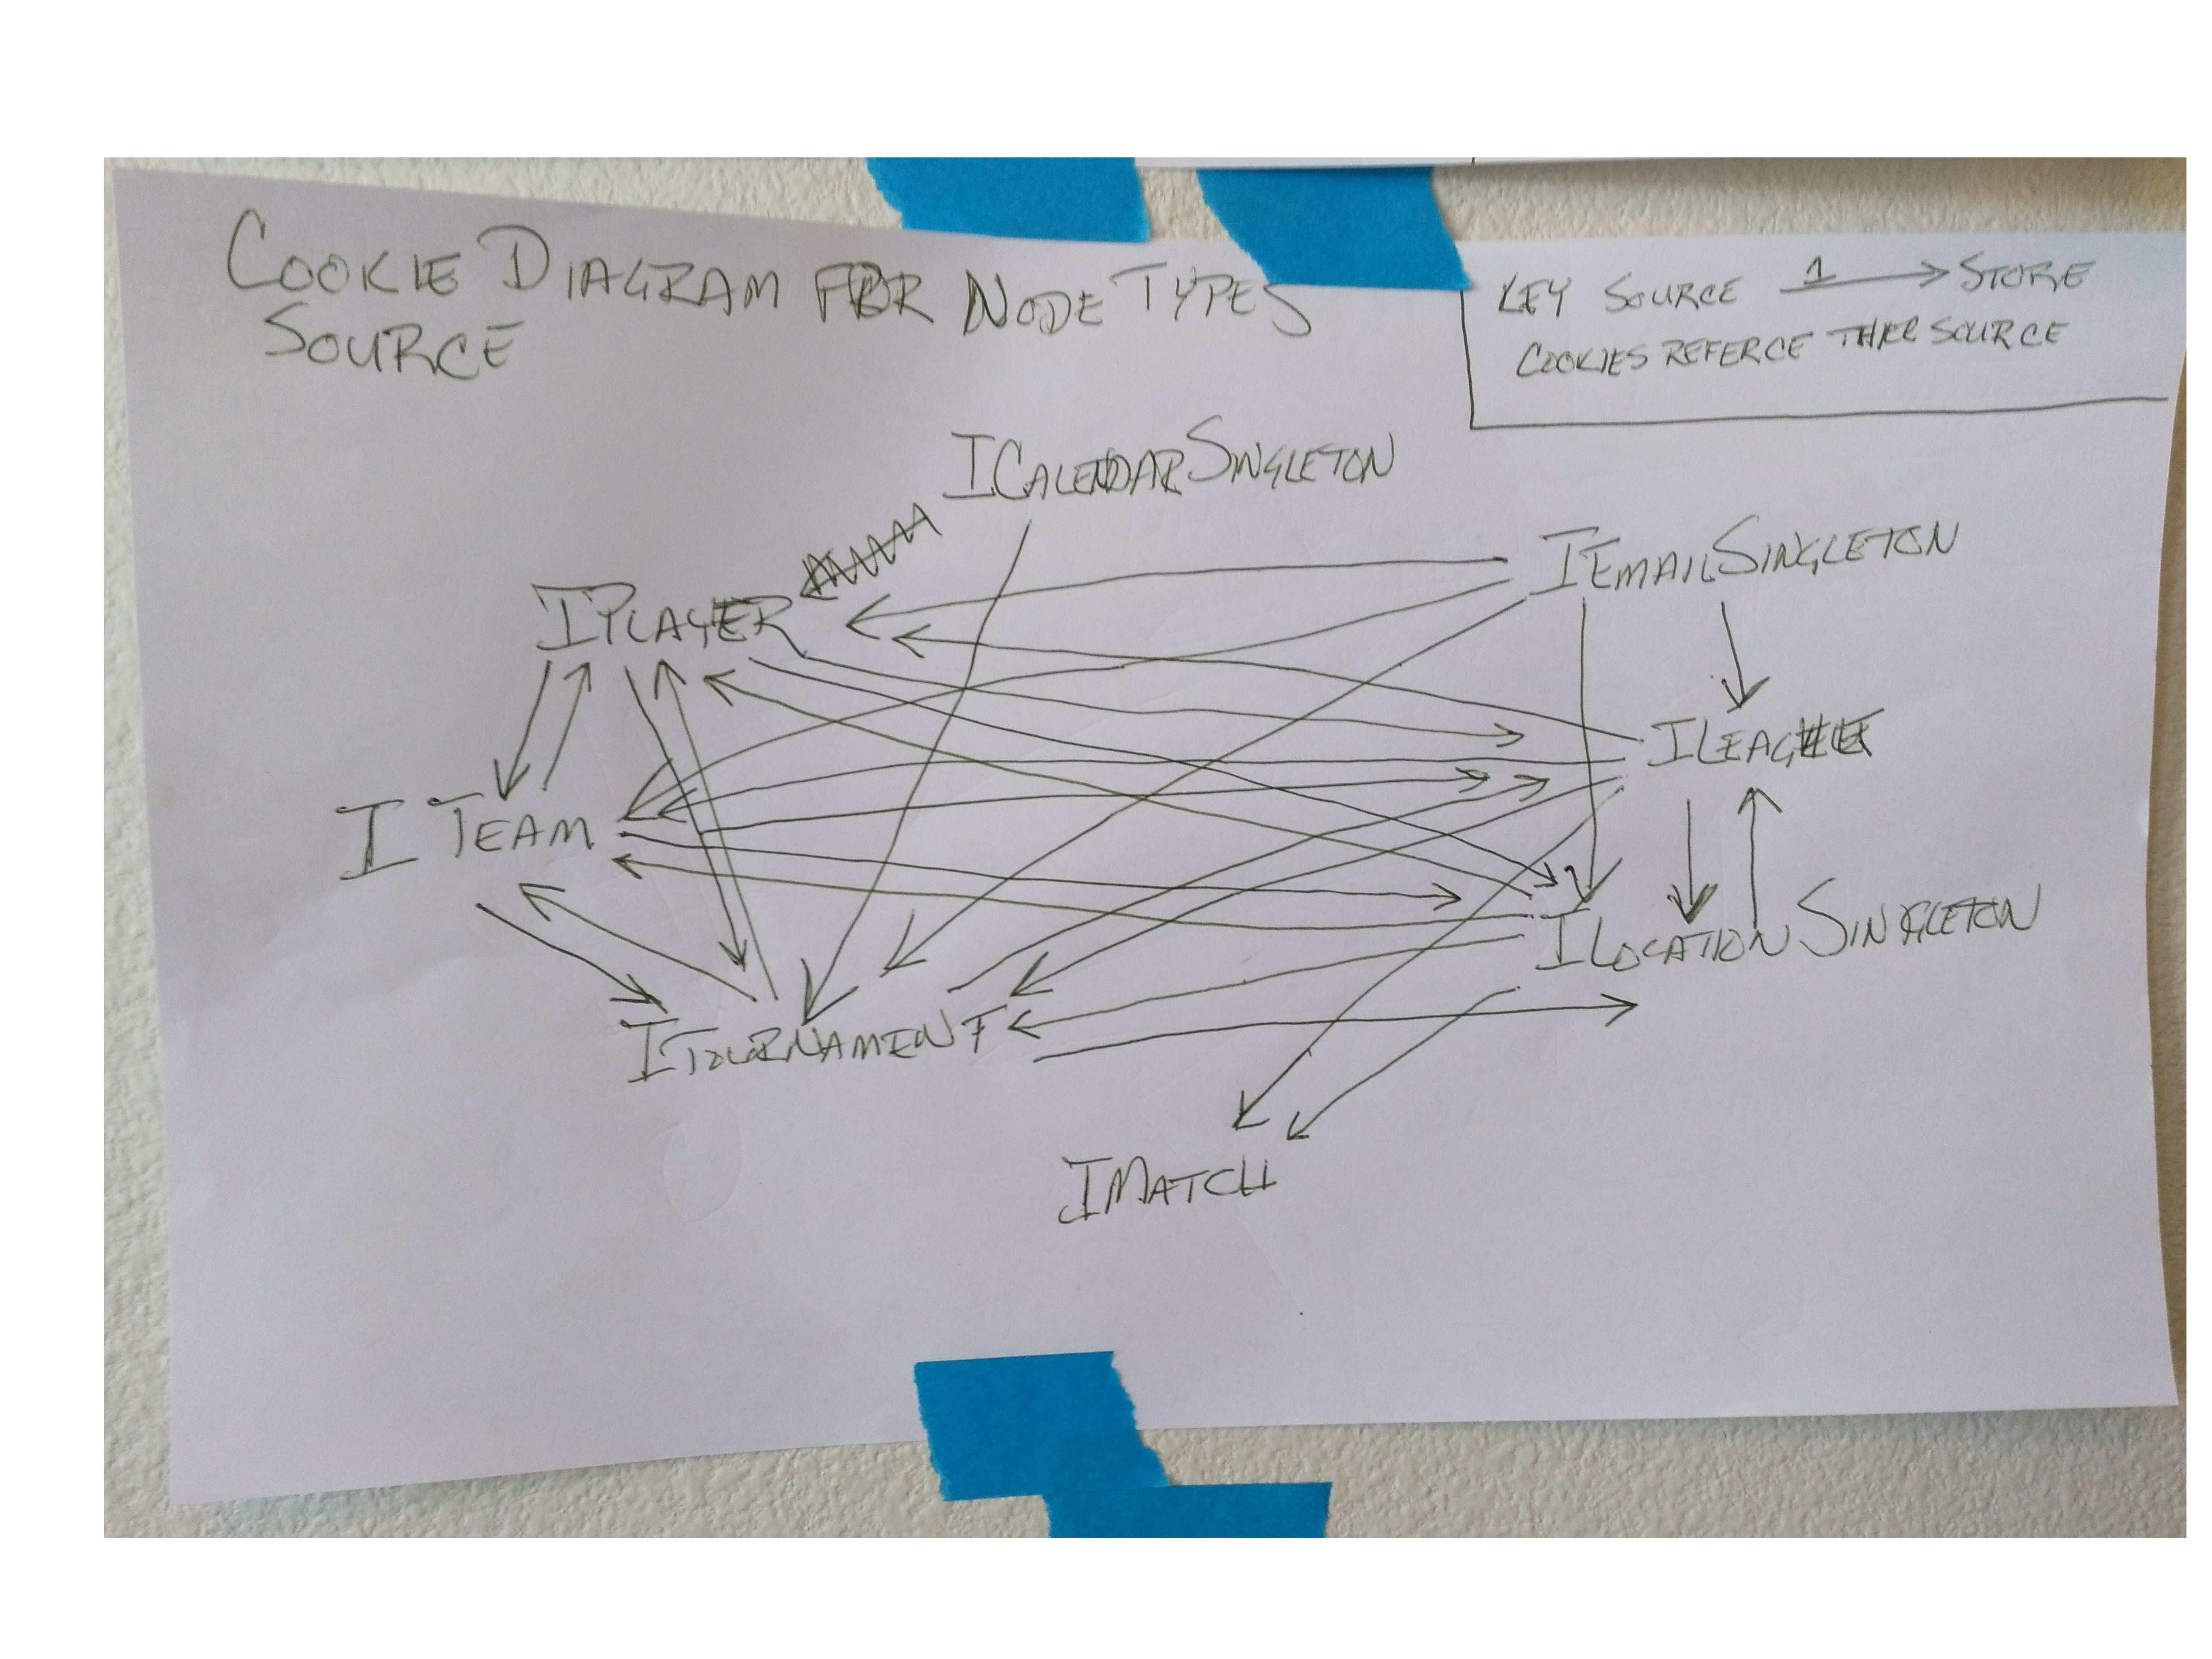 COOKIE DIAGRAM FOR NODE TYPES
SOURCE
KEY SOURCE 1 STORE
COOKIES REFERCE SOURCE
ICALENDARSINGLETON
IEMAILSINGLETON
IPLAYER
ILEAGUE
I TEAM
ILOCATION SINGLETON
ITOURNAMENT
IMATCH